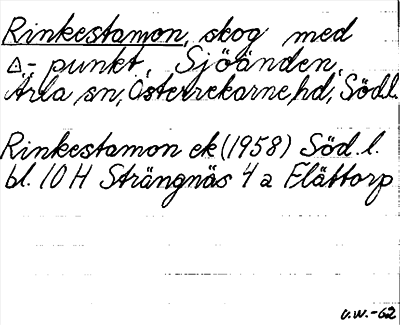 Rinkestamon, skog med
△- punkt, Sjöänden,
Ärla sn, Österrekarne hd, Södl.
Rinkestamon ek (1958) Söd. l.
bl. 10 H Strängnäs 4 a Flättorp
v.w.-62